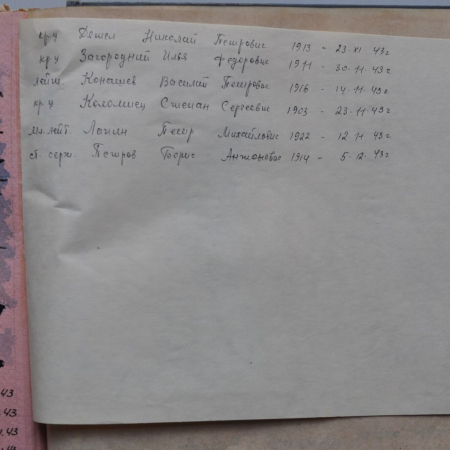 кр-ц Дешел Николай Петрович 1913 - 23. XI. 43г
кр ц Загородний Илья Федорович 1911 - 30. 11. 43 г
лейт. Конашев Василий Петрович 1916 - 14. 11. 43 г
кр ц Коломиец Степан Сергеевич 1903 - 23. 11. 43 г
Мл. лейт. Лапин Петр Михайлович 1922 - 12. 11. 43г
ст. серж. Петров Борис Антонович 1914 - 5. 12. 43г
43
.43
.43